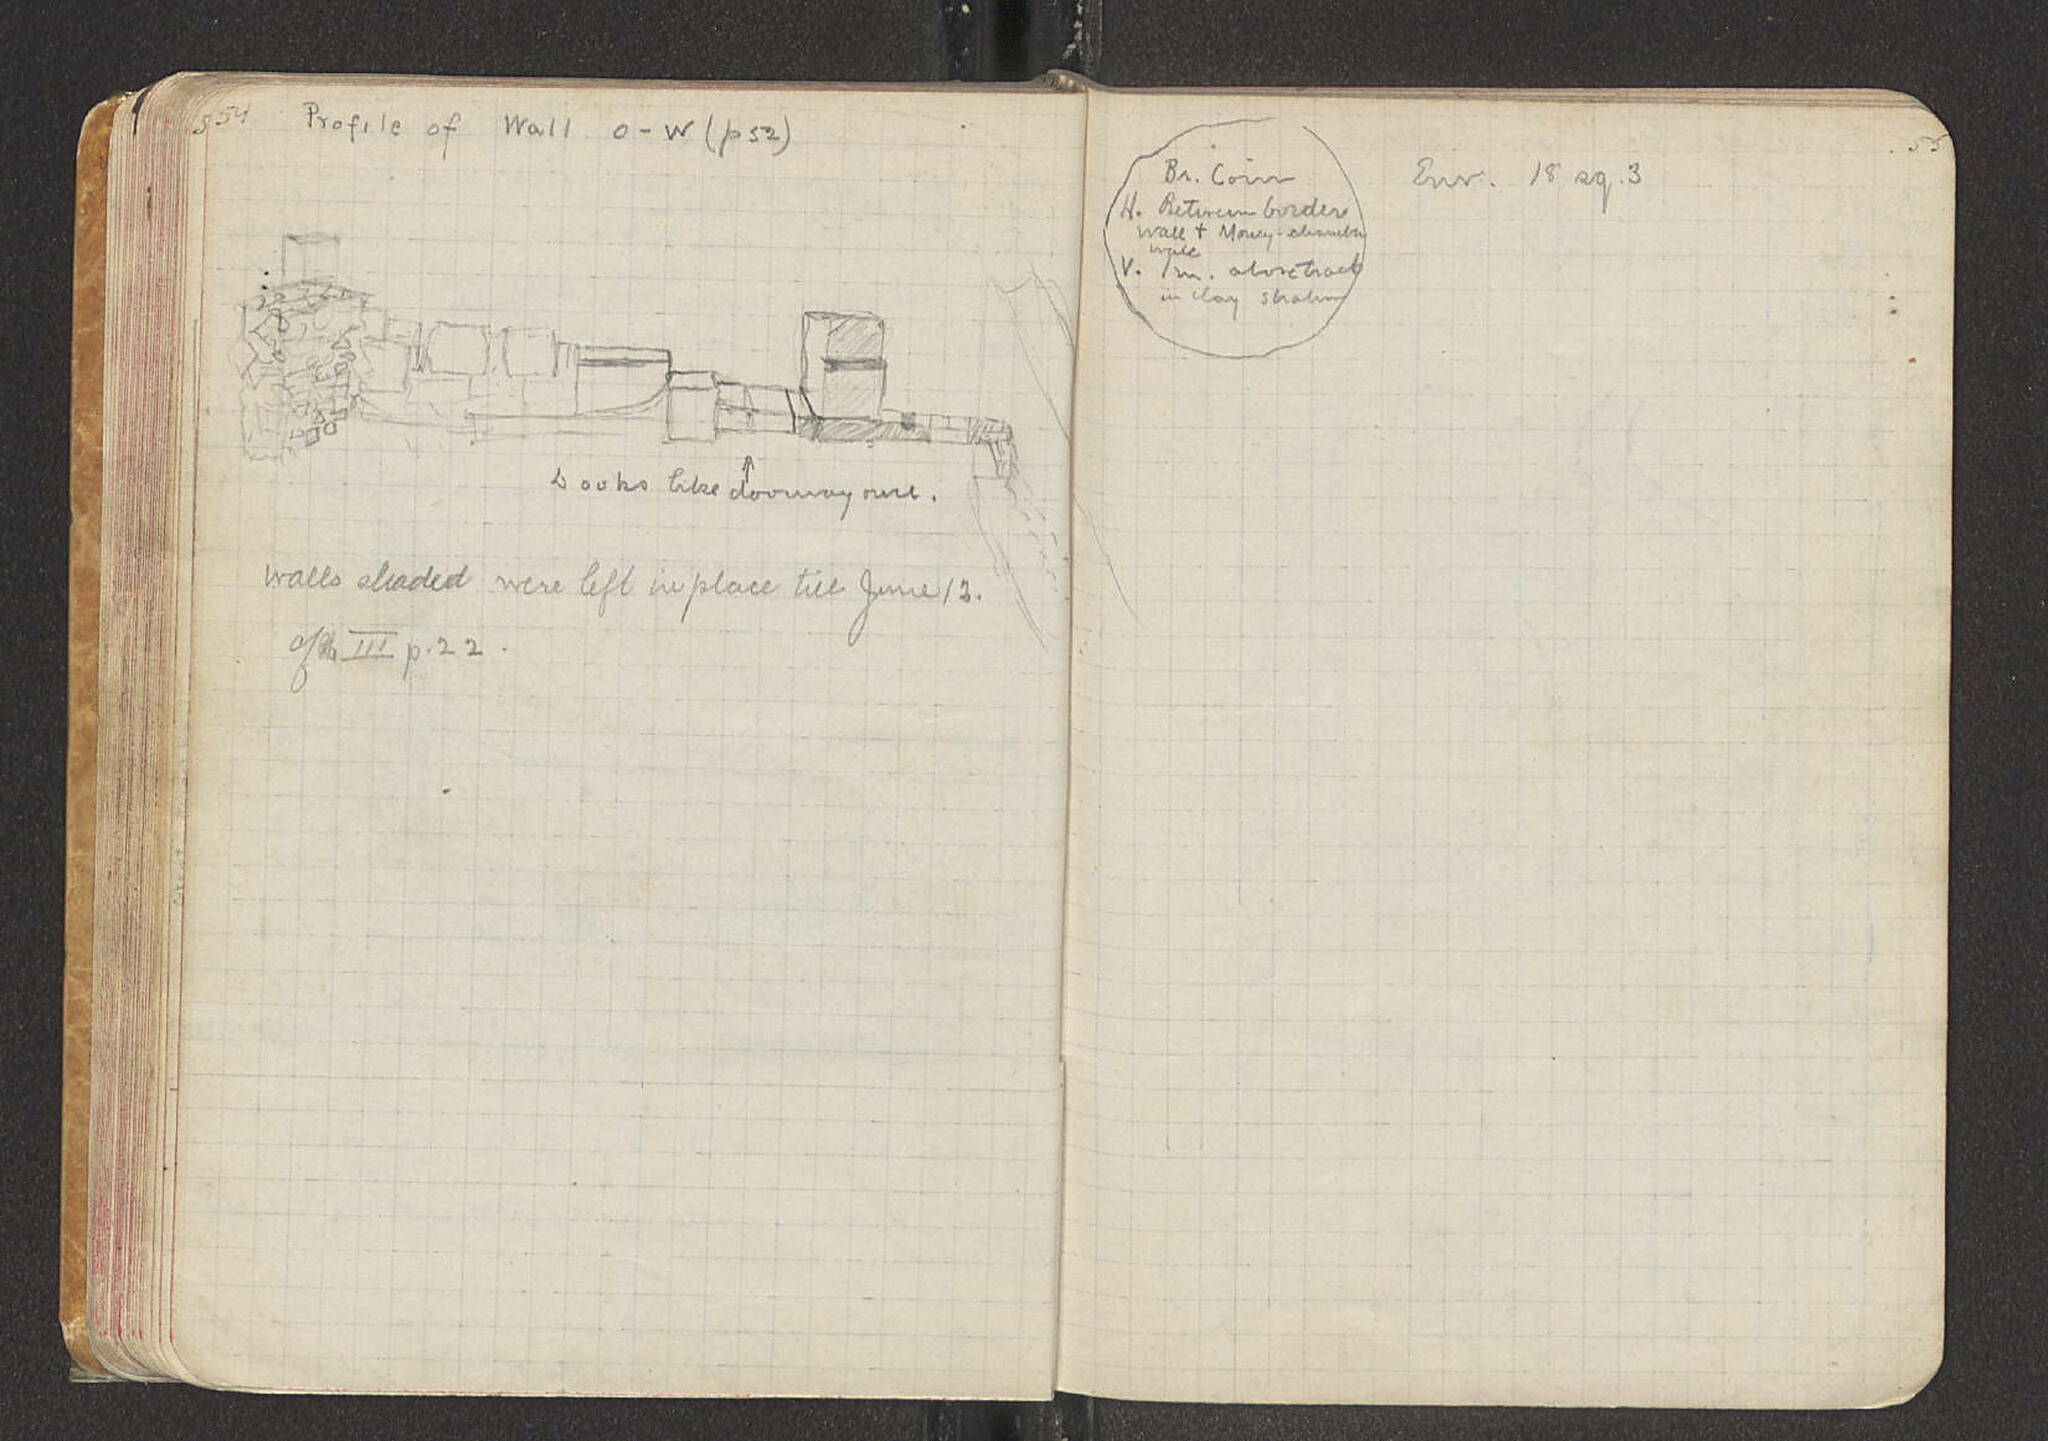 54
Profile of Wall O-W (p 52)
Looks like doorway over.
Walls shaded were left in place till June 13.
cf. III p. 22.
55
Br. Coin
H. Between border
wall + Money-chamber
wall
V. 1 m. above track
in clay stratum
Env. 18 sq. 3